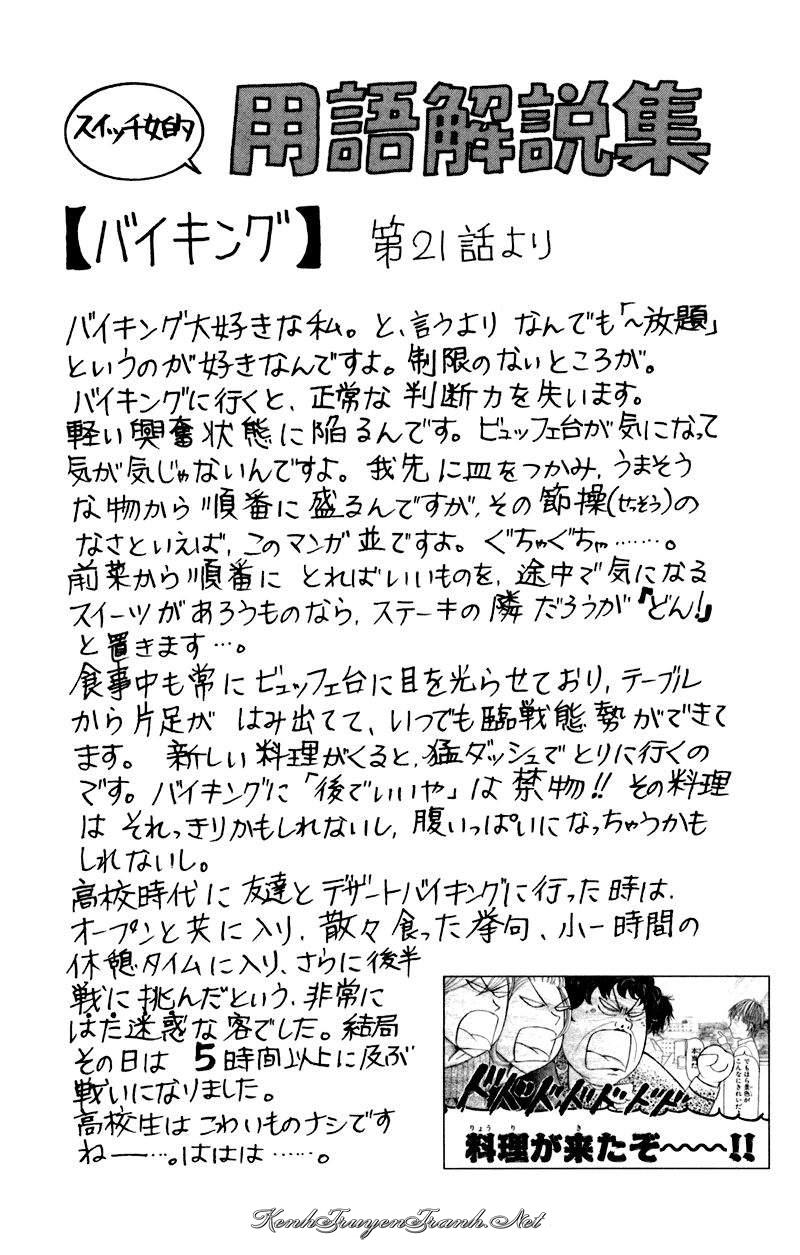 スイッチ女的
用語解説集
【バイキング】 第21話より
バイキング大好きな私。と、言うより なんでも「〜放題」
というのが好きなんですよ。制限のないところが。
バイキングに行くと、正常な判断力を失います。
軽い興奮状態に陥るんです。ビュッフェ台が気になって
気が気じゃないんですよ。我先に皿をつかみ、うまそう
な物から順番に盛るんですが、その節操(せっそう)の
なさといえば、このマンガ並ですよ。ぐちゃぐちゃ……。
前菜から順番に とればいいものを、途中で気になる
スイーツがあろうものなら、ステーキの隣だろうが『どん!』
と置きます…。
食事中も常にビュッフェ台に目を光らせており、テーブル
から片足が はみ出てて、いつでも臨戦態勢ができて
ます。 新しい料理がくると、猛ダッシュでとりに行くの
です。バイキングに「後でいいや」は禁物!! その料理
は それっきりかもしれないし、腹いっぱいになっちゃうかも
しれないし。
高校時代に友達とデザートバイキングに行った時は、
オープンと共に入り、散々食った挙句、小一時間の
休憩タイムに入り、さらに後半
戦に挑んだという、非常に
はた迷惑な客でした。結局
その日は 5時間以上に及ぶ
戦いになりました。
高校生は こわいものナシです
ねー…。ははは……。
でもほら景色が
こんなにきれいだ
本当だ
ドドドドドドド
りょうり き
料理が来たぞ〜〜〜〜!!
KenhTruyenTranh.Net